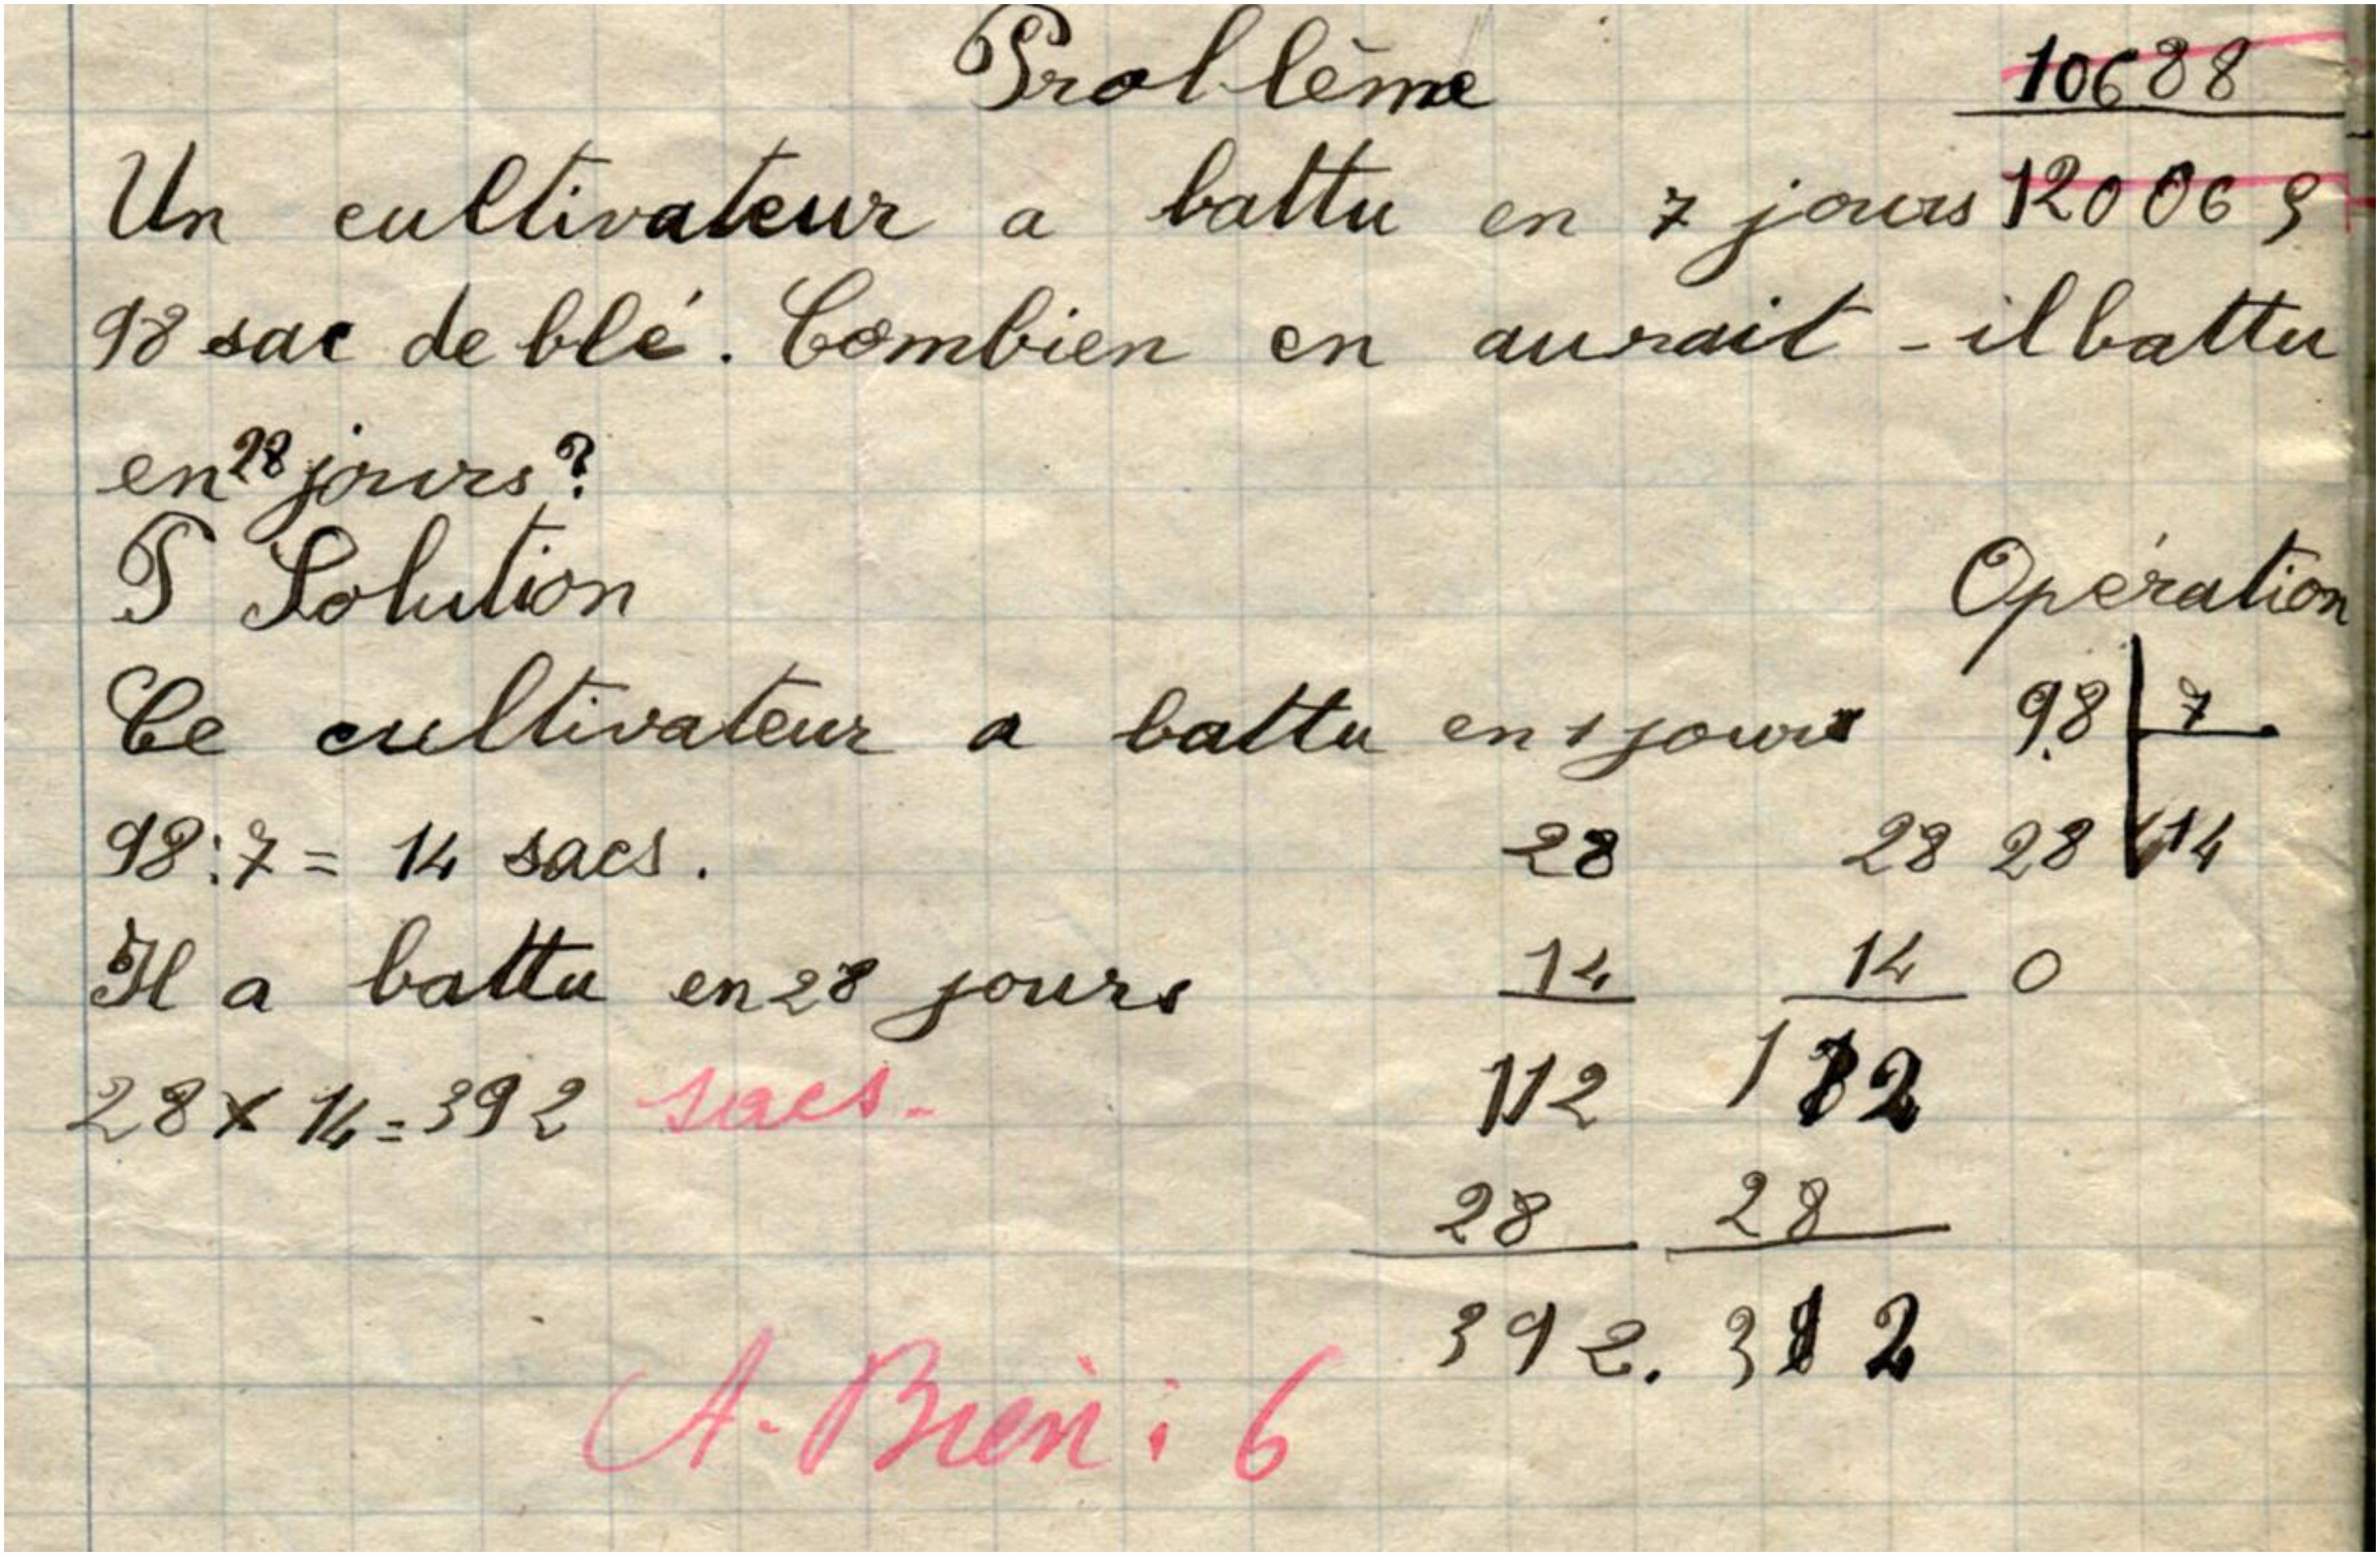 Problème
10688
Un cultivateur a battu en 7 jours 120069
98 sac de blé. Combien en aurait-il battu
en 28 jours?
P Solution Opération
Ce cultivateur a battu en 1 jour 98 7
98:7= 14 sacs. 28 28 28 14
Il a battu en 28 jours 14 14 0
28 x 14=392 sacs. 112 112
28 28
392. 312
A. Bien: 6